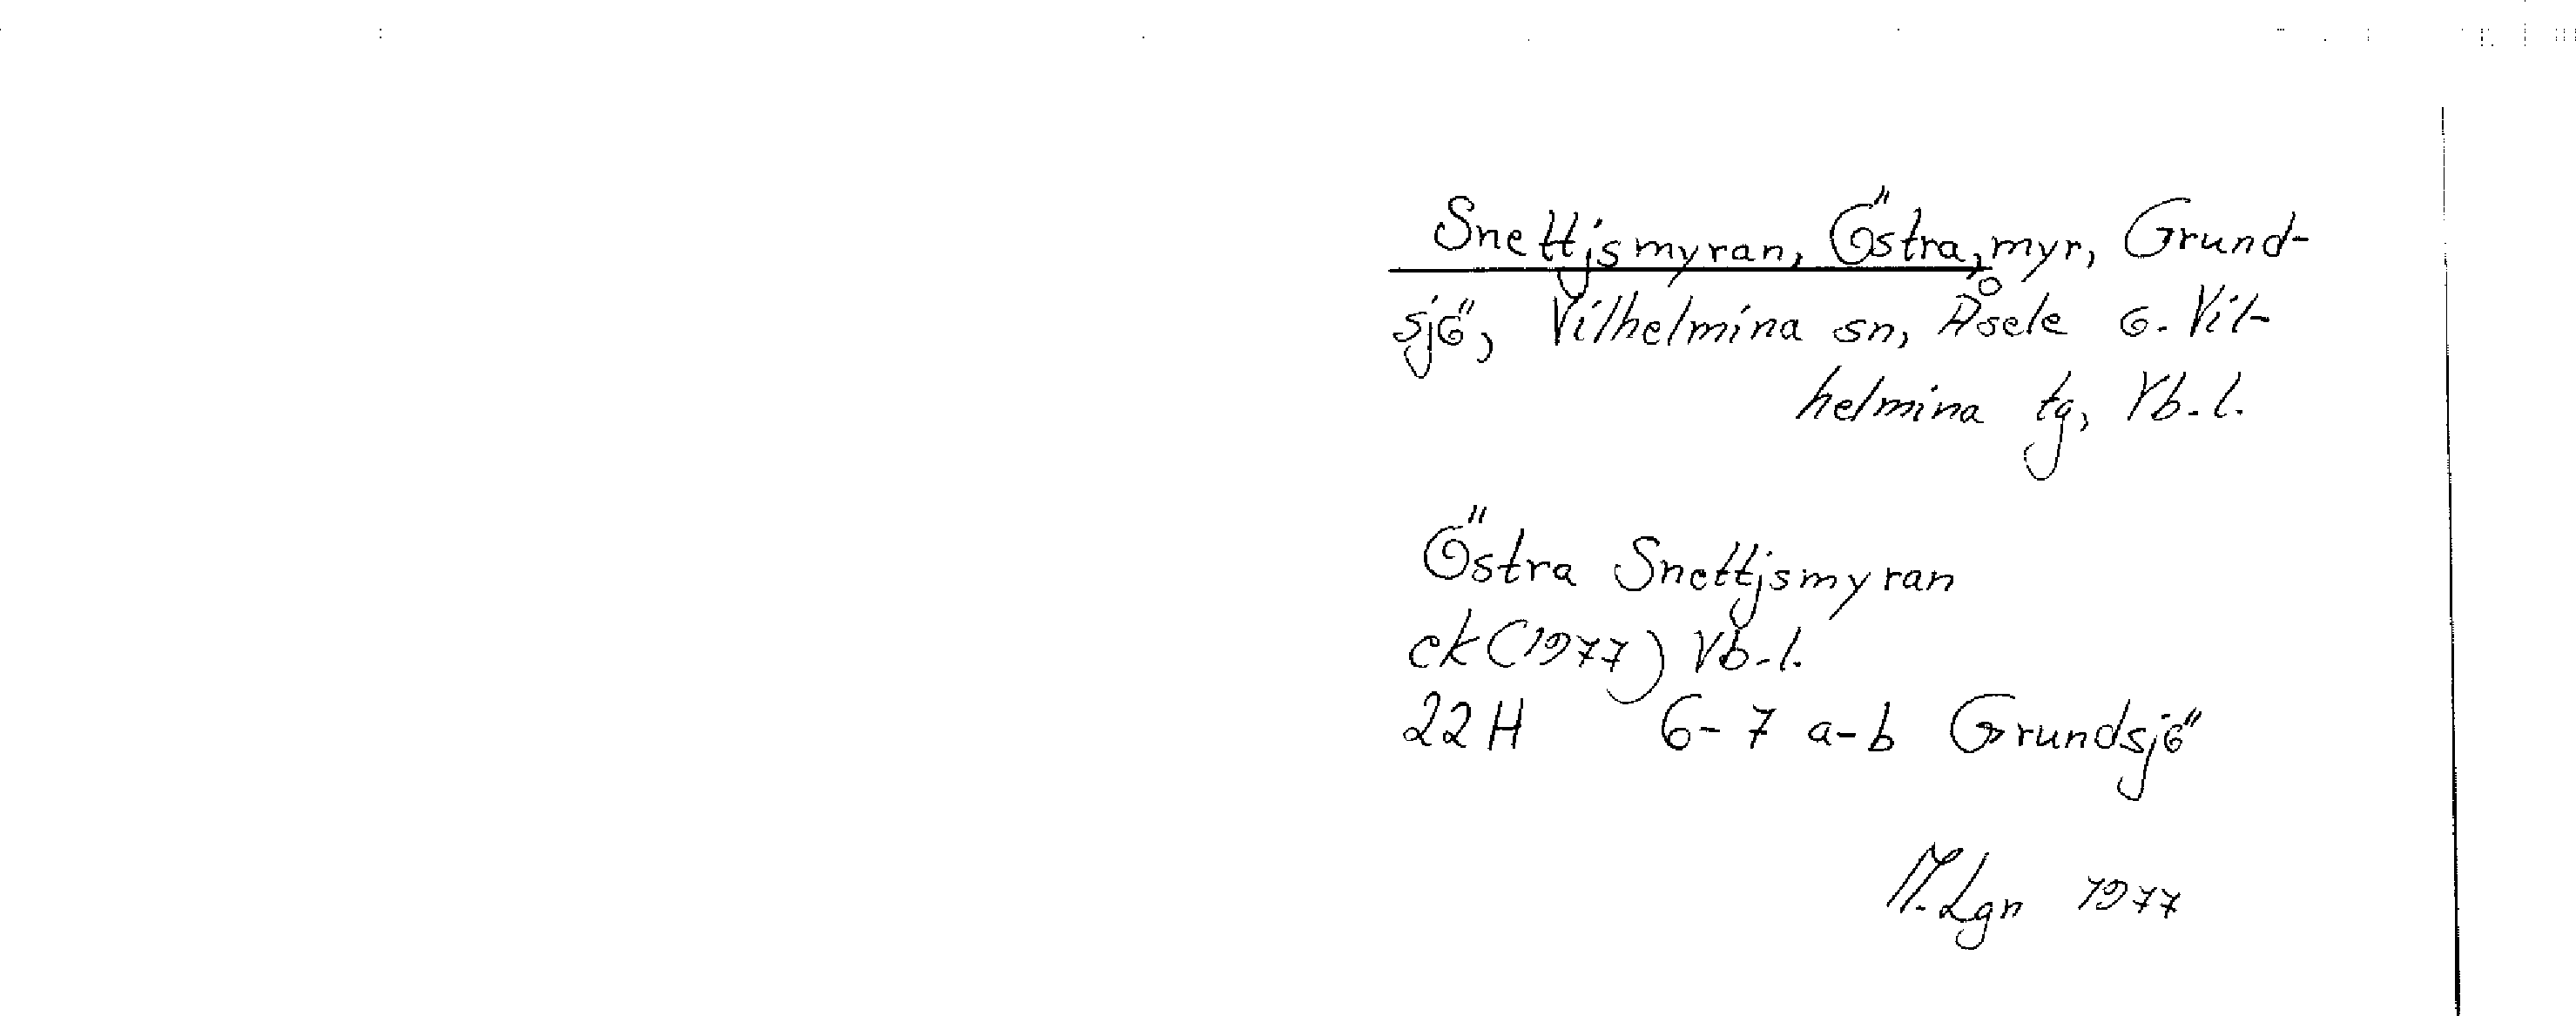 Snettjsmyran, Östra, myr, Grund-
sjö, Vilhelmina sn, Åsele o. Vil-
helmina tg, Vb.l.
Östra Snettjsmyran
ek (1977) Vb.l.
22 H 6-7 a-b Grundsjö
M. Lgn 1977